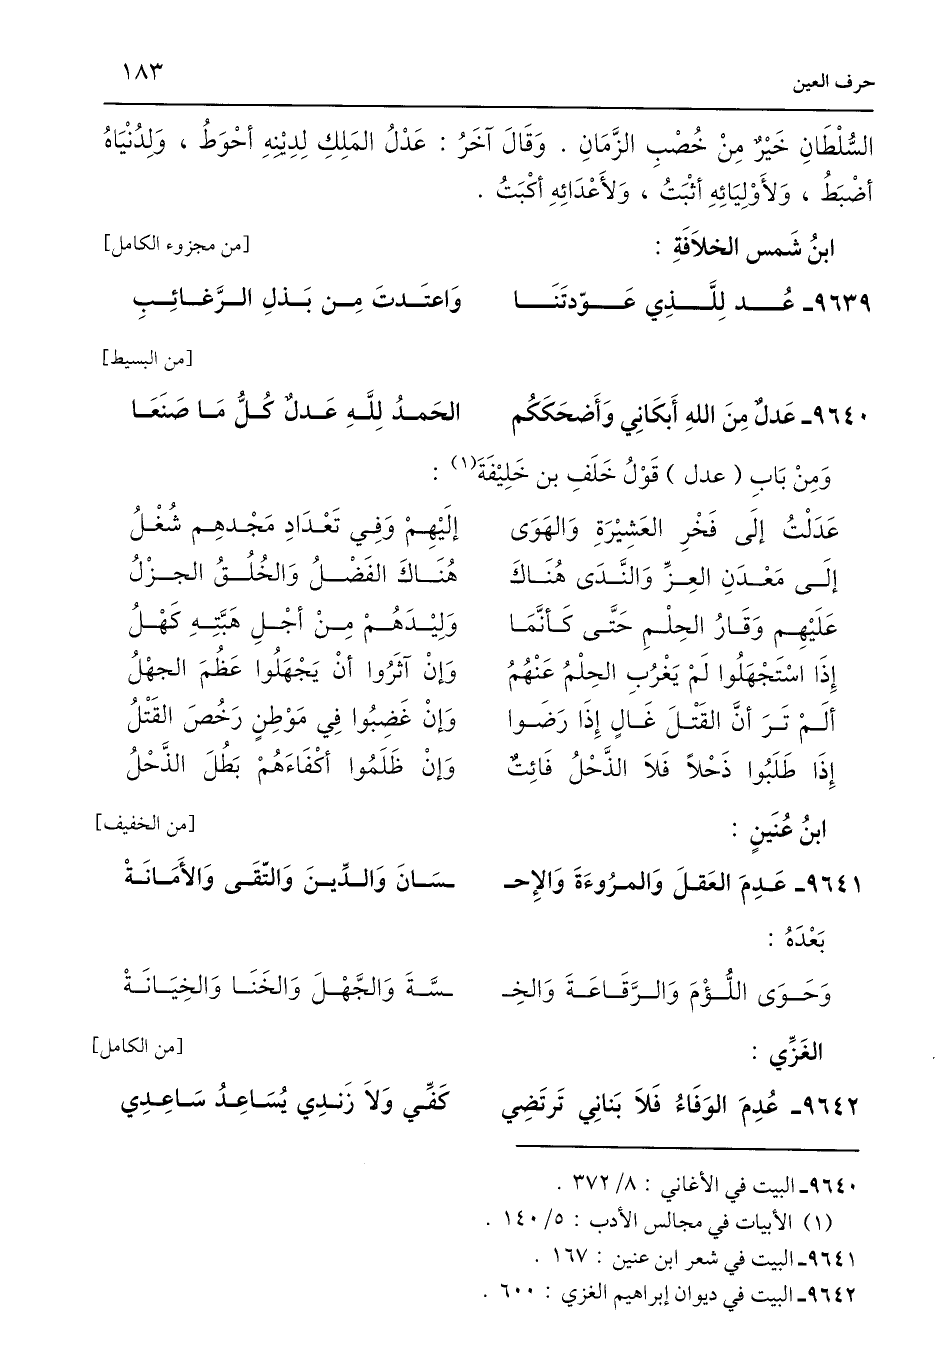 حرف العين ١٨٣
السُّلْطَانِ خَيْرٌ مِنْ خُصْبِ الزَّمَانِ . وَقَالَ آخَرُ : عَدْلُ المَلِكِ لِدِيْنِهِ أحْوَطُ ، وَلِدُنْيَاهُ
أضْبَطُ ، وَلأوْلِيَائِهِ أثْبَتُ ، وَلأعْدَائِهِ أكْبَتُ .
ابنُ شَمسِ الخلاَفَةِ : [من مجزوء الكامل]
٩٦٣٩ـ عُـــد لِلَّـــذِي عَـــوّدتَنَـــا وَاعتَـدتَ مِـن بَـذلِ الـرَّغَـائِـبِ
[من البسيط]
٩٦٤٠ـ عَدلٌ مِنَ اللهِ أَبكَانِي وَأَضحَكَكُم الحَمـدُ لِلَّهِ عَـدلٌ كُـلُّ مَـا صَنَعَـا
وَمِنْ بَابِ ( عدل ) قَوْلُ خَلَفِ بن خَلِيْفَةَ(١) :
عَدَلْتُ إلَى فَخْرِ العَشِيْرَةِ وَالهَوَى إلَيْهِمْ وَفِي تَعْدَادِ مَجْدِهِم شُغْلُ
إلَـى مَعْـدَنِ العِـزِّ وَالنَّدَى هُنَـاكَ هُنَـاكَ الفَضْـلُ وَالخُلُـقُ الجـزْلُ
عَلَيْهِـم وَقَـارُ الحِلْـمِ حَتَّـى كَـأنَّمَـا وَلِيْـدَهُـمْ مِـنْ أجْـلِ هَيْبَتِـهِ كَهْـلُ
إذَا اسْتَجْهَلُوا لَمْ يَغْرُبِ الحِلْمُ عَنْهُمُ وَإنْ آثَرُوا أنْ يَجْهَلُوا عَظُمَ الجهْلُ
ألَـمْ تَـرَ أنَّ القَتْـلَ غَـالٍ إذَا رَضَـوا وَإنْ غَضِبُوا فِي مَوْطِنٍ رَخُصَ القَتْلُ
إذَا طَلَبُوا ذَحْلاً فَلاَ الذَّحْلُ فَائِتٌ وَإنْ ظَلَمُوا أكْفَاءَهُمْ بَطُلَ الذَّحْلُ
ابنُ عُنَينٍ : [من الخفيف]
٩٦٤١ـ عَـدِمَ العَقـلَ وَالمـرُوءَةَ وَالإحـ ـسَـانَ وَالـدِّيـنَ وَالتّقَـى وَالأَمَـانَـةْ
بَعْدَهُ :
وَحَـوَى اللُّـؤْمَ وَالـرَّقَـاعَـةَ وَالخِـ ـسَّـةَ وَالجَّهْـلَ وَالخَنَـا وَالخِيَـانَـةْ
الغَزِّي : [من الكامل]
٩٦٤٢ـ عُدِمَ الوَفَاءُ فَلاَ بَنانِي تَرتَضِي كَفِّـي وَلاَ زَنـدِي يُسَـاعِـدُ سَـاعِـدِي
٩٦٤٠ـ البيت في الأغاني : ٨/ ٣٧٢ .
(١) الأبيات في مجالس الأدب : ٥/ ١٤٠ .
٩٦٤١ـ البيت في شعر ابن عنين : ١٦٧ .
٩٦٤٢ـ البيت في ديوان إبراهيم الغزي : ٦٠٠ .